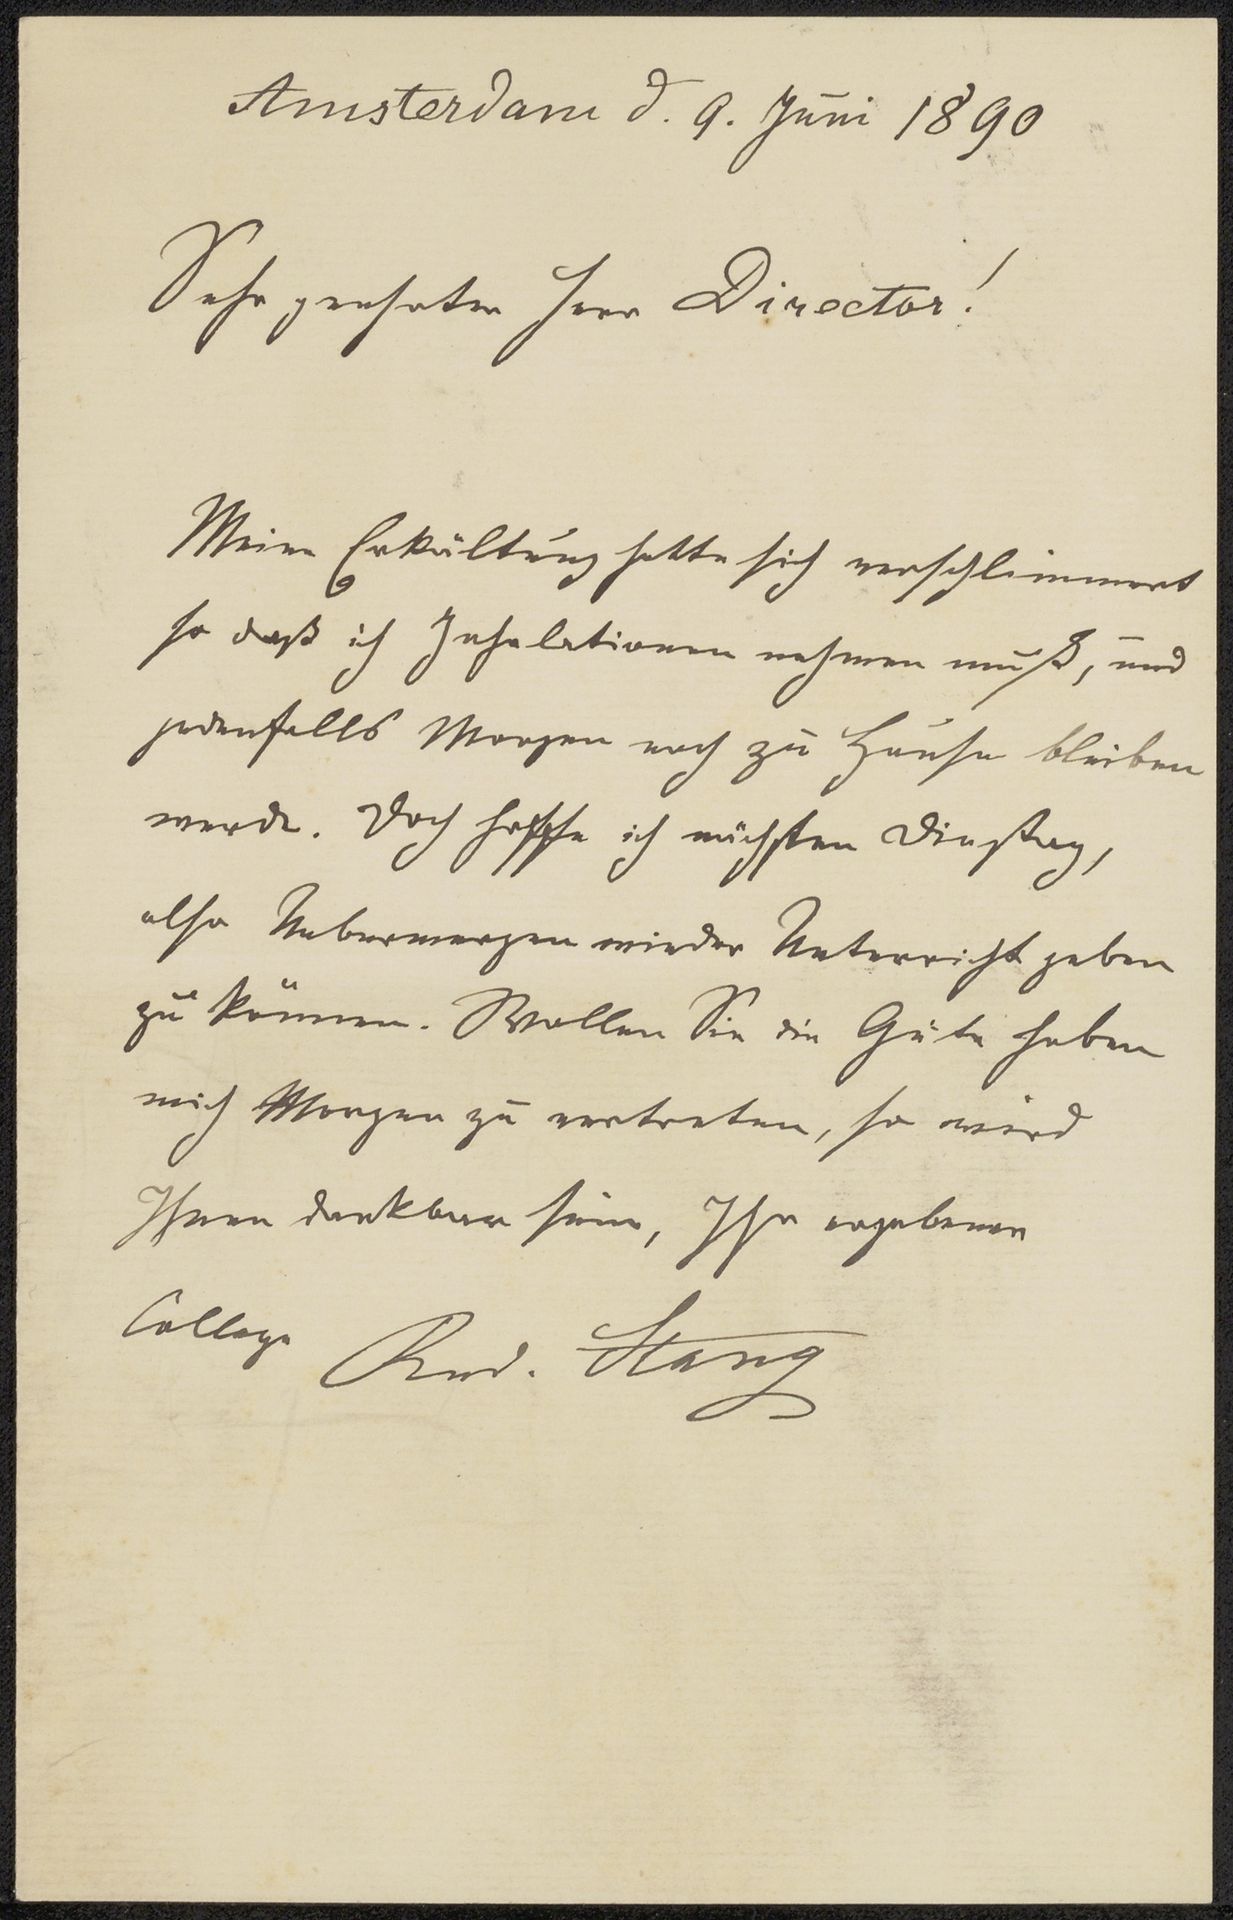 Amsterdam d. 9. Juni 1890
Sehr geehrter Herr Director!
Meine Erkältung hatte sich verschlimmert
so daß ich Inhalationen nehmen muß, und
jedenfalls Morgen noch zu Hause bleiben
werde. Doch hoffe ich nächsten Dinstag,
also Uebermorgen wieder Unterricht geben
zu können. Wollen Sie die Güte haben
mich Morgen zu vertreten, so wird
Ihnen dankbar sein, Ihr ergebener
College Rud. Stang